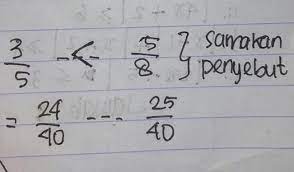 3/5 -<- 5/8 } samakan penyebut
= 24/40 --- 25/40